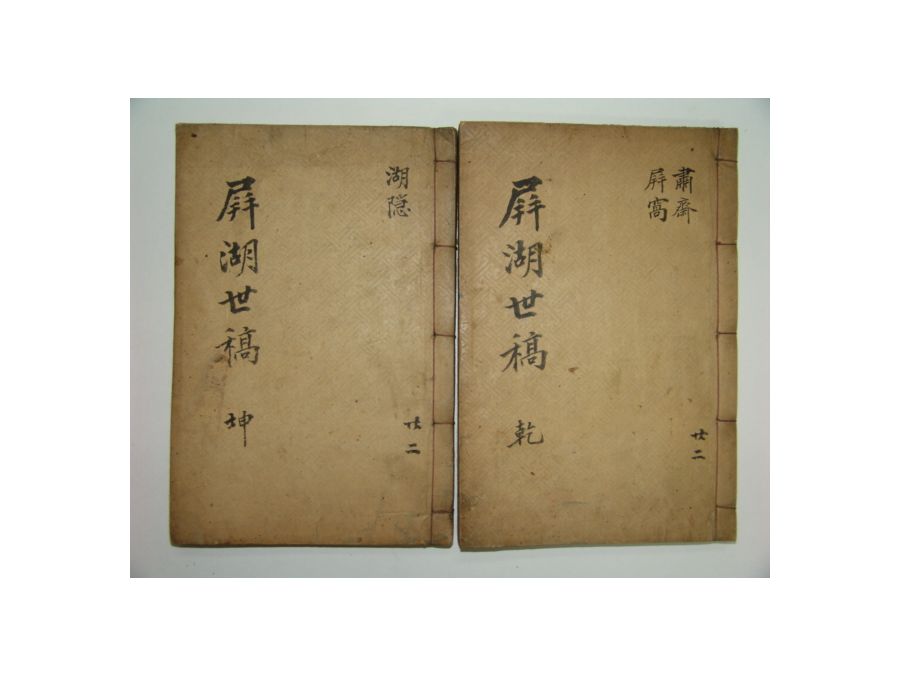 肅齋
屛窩
屛湖世稿 乾
共二
湖隠
屛湖世稿 坤
共二